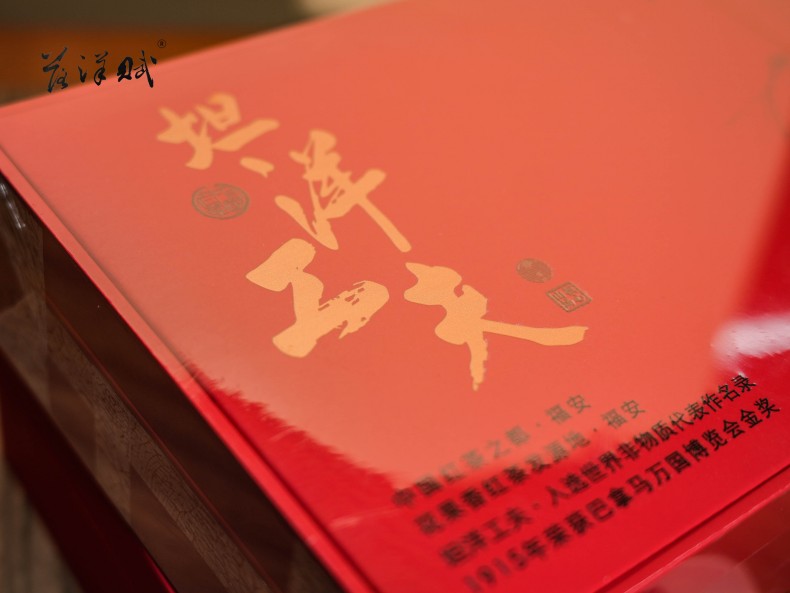 洋赋®
坦洋
工夫
中国红茶之都·福安
花果香红茶发源地·福安
坦洋工夫·入选世界非物质代表作名录
1915年荣获巴拿马万国博览会金奖